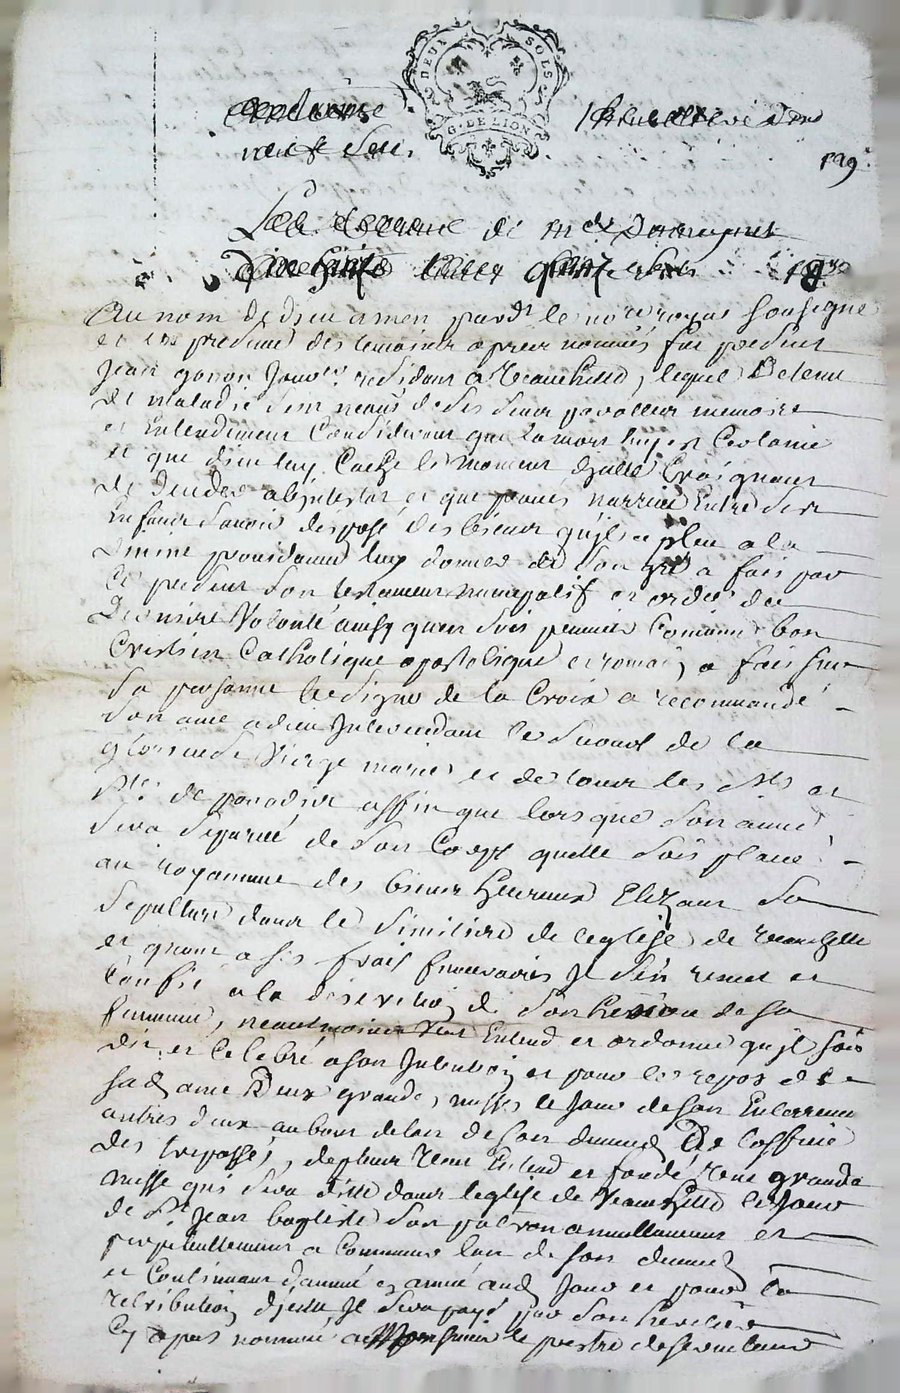 DEUX SOLS
G. DE LION
neuf Sols
129
de
Au nom de dieu amen pard.t le no.re royal soubsigné
et en presence des temoins apres nommés fut present
Jean gonon Jouv.r residant a Veauchette, lequel Detenu
de maladie sein neaus de ses sens par memoire
et Entendement Considerant que la mort luy est Certaine
et que dieu luy Cache le moment d'jcelle Craignant
de deceder abjntestat et que procés narrive Entre ses
Enfans davoir disposé des biens qu'jl a pleu a la
divine providence luy donner de son gré a fait par
le present son testament nuncupatif et ordre de
derniere Volonté ainsy quen suit premier Comme bon
Crestien Catholique apostolique et romain a fait sur
sa personne le signe de la Croix a recommandé
son ame a dieu Jntercedant le secours de la
glorieuse Vierge marie et de tous les sts et
stes de paradis affin que lors que son ame
sera separée de son Corps quelle soit placée
au royaume des biens heureux Elizant sa
sepulture dans le simitiere de leglise de Veauchette
et quant a ses frais funeraires Jl s'en remet et
Confie a la discretion de son heritiere
neantmoins Veut Entend et ordonne qu'jl soit
dit et Celebré a son Jntention et pour le repos de
sad. ame Deux grandes messes le Jour de son Enterrement
autres deux au bout de lan de son deces De loffice
des trepassés, de plus Veut Entend et fonde Une grande
messe qui sera ditte dans leglise de Veauchette le Jour
de St Jean baptiste son patron annuellement et
perpetuellement a Commencer lan de son deces
et Continuant dannée en année aud. Jour et pour la
retribution djcelle Jl sera payé par son heritiere
Cy apres nommée a Monsieur le prestre desservant